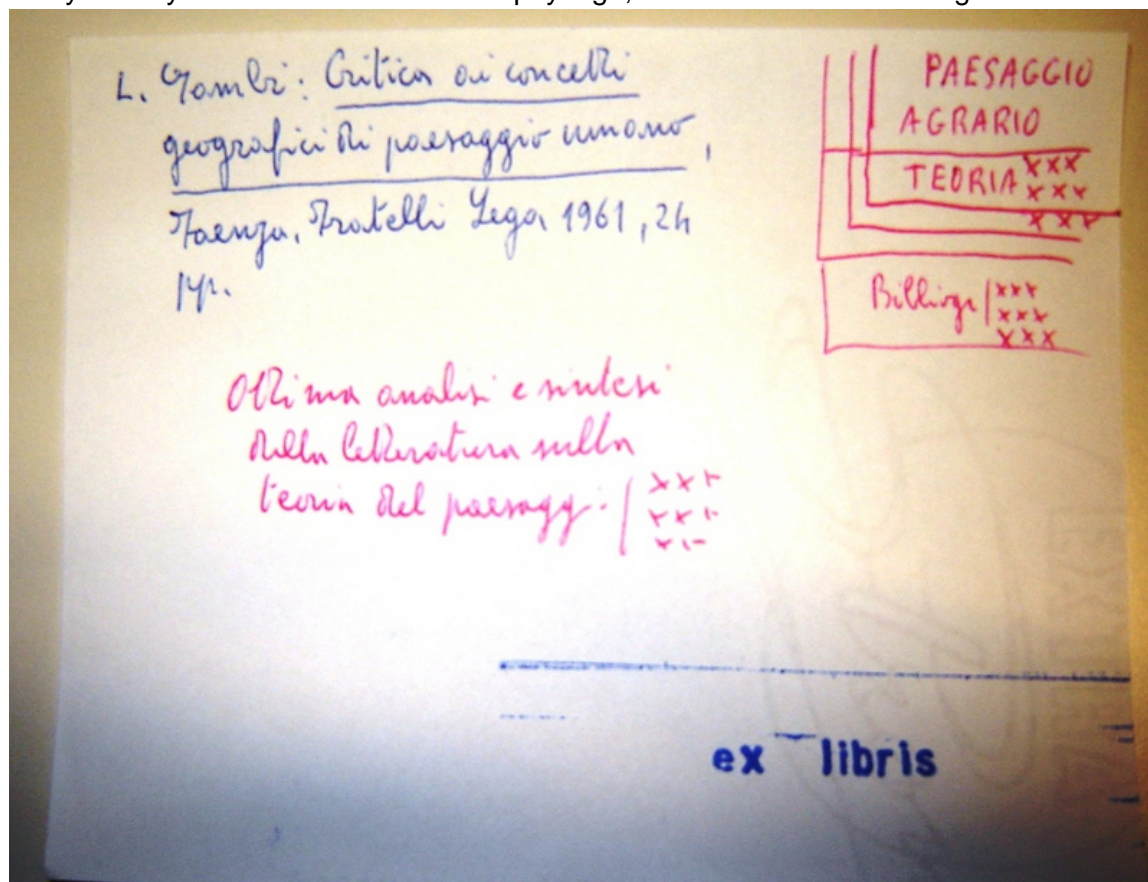 L. Gambi: Critica ai concetti
geografici di paesaggio umano,
Faenza, Fratelli Lega 1961, 24
pp.
PAESAGGIO
AGRARIO
TEORIA xxx
xxx
xxx
Bibliogr/ xxx
xxx
xxx
Ottima analisi e sintesi
della letteratura sulla
teoria del paesagg. / xxx
xxx
xxx
ex libris